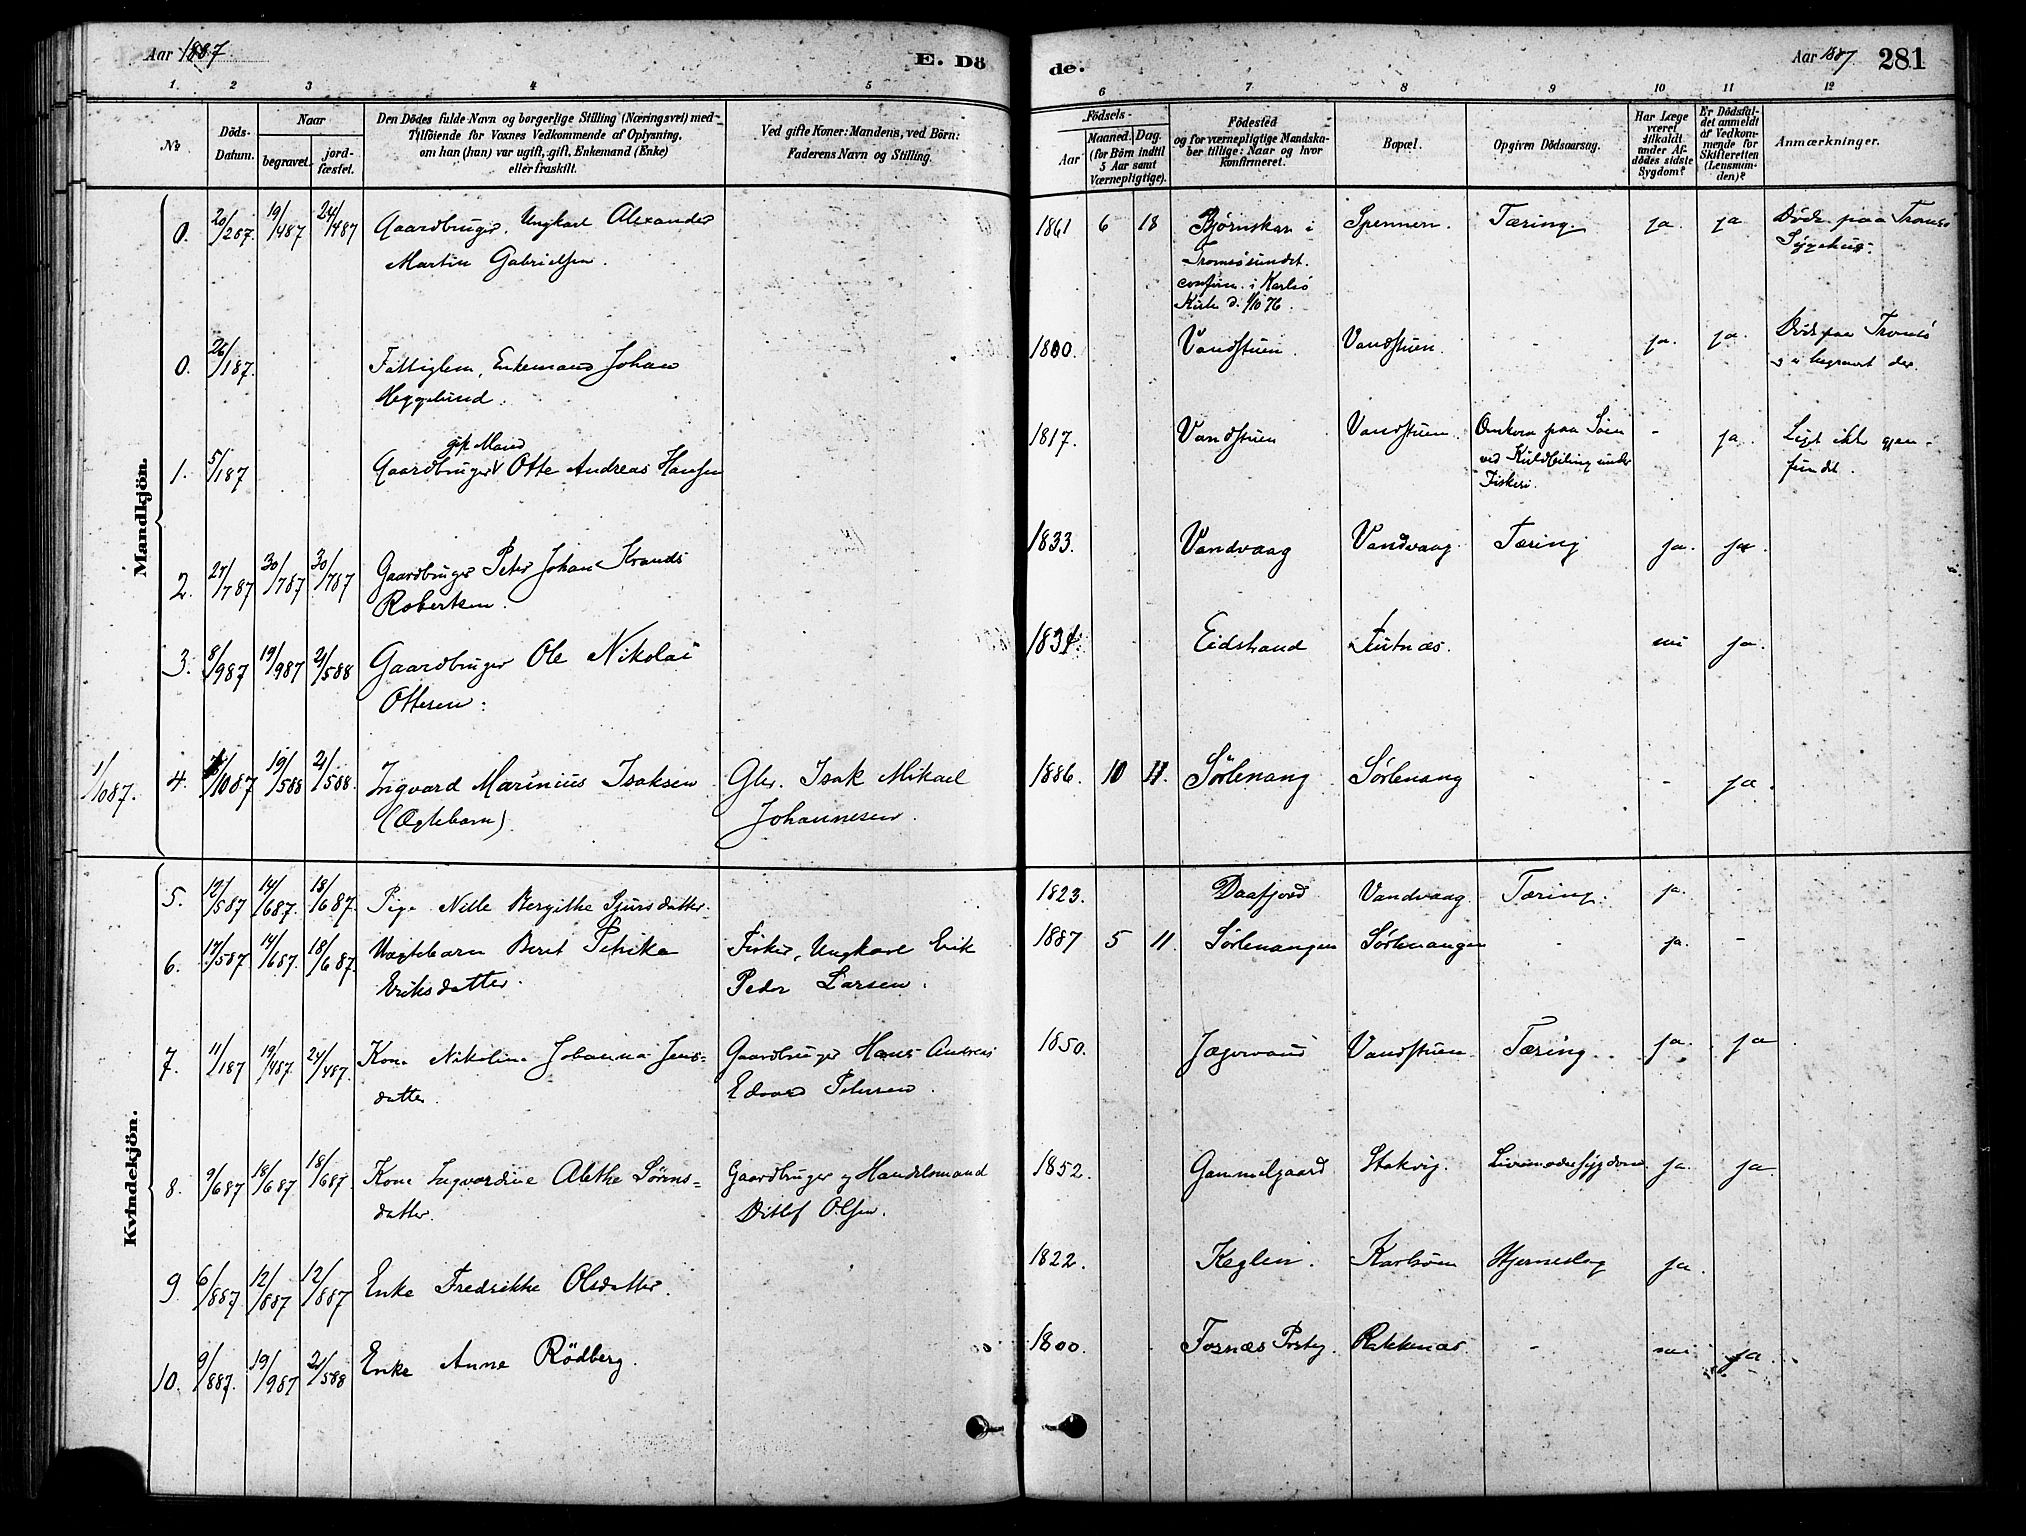 Aar 1887
E. Dö
de.
Aar 1887.
281
1. 2 3 4 5
6 7 8 9 10 11 12
No
Döds-
Datum.
Naar
begravet.
jord-
fæstet.
Den Dödes fulde Navn og borgerlige Stilling (Næringsvei) med-
Tilföiende for Voxnes Vedkommende af Oplysning,
om han (hun) var ugift, gift, Enkemand (Enke)
eller fraskilt.
Ved gifte Koner: Mandens, ved Börn:
Faderens Navn og Stilling.
Födsels-
Aar
Maaned.
Dag.
(for Börn indtil
5 Aar samt
Værnepligtige).
Födested
og for værnepligtige Mandska-
ber tillige: Naar og hvor
konfirmeret.
Bopæl.
Opgiven Dödsaarsag.
Har Læge
været
tilkaldt
under Af-
dödes sidste
Sygdom?
Er Dödsfal-
det anmeldt
af Vedkom-
mende for
Skifteretten
(Lensman-
den)?
Anmærkninger.
Mandkjön.
0. 20/287. 19/487 24/487 Gaardbruger, Ungkarl Alexander
Martin Gabrielsen.
1861 6 18 Bjørnskar i Spennen. Tæring. ja. ja Døde paa Tromsø
Tromsøsundet. Sygehus.
confirm. i Karlsø
Kirke d. 1/10 76.
0. 26/187. Fattiglem, Enkemand Johan
Heggelund.
1800. Vandstuen. Vandstuen. - ja. ja. Døde paa Tromsø
begravet der.
1. 5/187 Gaardbruger Otte Andreas Hansen
gift Mand
1817. Vandstuen Vandstuen. Omkom paa Søen - ja. Liget ikke gjen-
ved Kuldseiling under fundet.
Fiskeri.
2. 27/787 30/787 30/787 Gaardbruger Peter Johan
Robertsen.
1833. Vandvaag Vandvaag. Tæring ja. ja.
3. 8/987 19/987 21/588 Gaardbruger Ole Nikolai
Ottesen.
1831. Eidstrand nei ja.
1/1087.
4. 1/1087 19/588 21/588. Ingvard Marinius Isaksen Gbr. Isak Mikael
(Ægtebarn). Johannesen.
1886. 10 11. Sørlenang Sørlenang - - ja.
Kvindekjön.
5. 12/587 14/687. 18/687. Pige Nille Bergithe Sjursdatter.
1823. Daafjord Vandvaag Tæring. ja. -
6. 17/587 14/687. 18/687. Uægtebarn Beret Petrikka Fisker, Ungkarl Erik
Eriksdatter. Peder Larsen.
1887 5 11 Sørlenangen Sørlenangen - ja. -
7. 11/187 19/487. 24/487. Kone Nikoline Johanna Jens- Gaardbruger Hans Andreas
datter. Edvard Petersen.
1850. Jægervand Vandstuen. Tæring. ja. ja
8. 9/687 18/687 18/687. Kone Ingvardine Alethe Sørens- Gaardbruger og Handelsmand
datter. Ditlef Olsen.
1852. Gammelgaard Stakvig. Livmodersygdom ja. ja.
9 6/887. 12/887 12/887 Enke Fredrikke Olsdatter.
1822. Keglen. Karlsøen Hjerneslag ja.
10. 9/887. 19/987 21/588 Enke Anne Rödberg.
1800. Fosnæs Prstg. Rakkenæs. - nei ja.